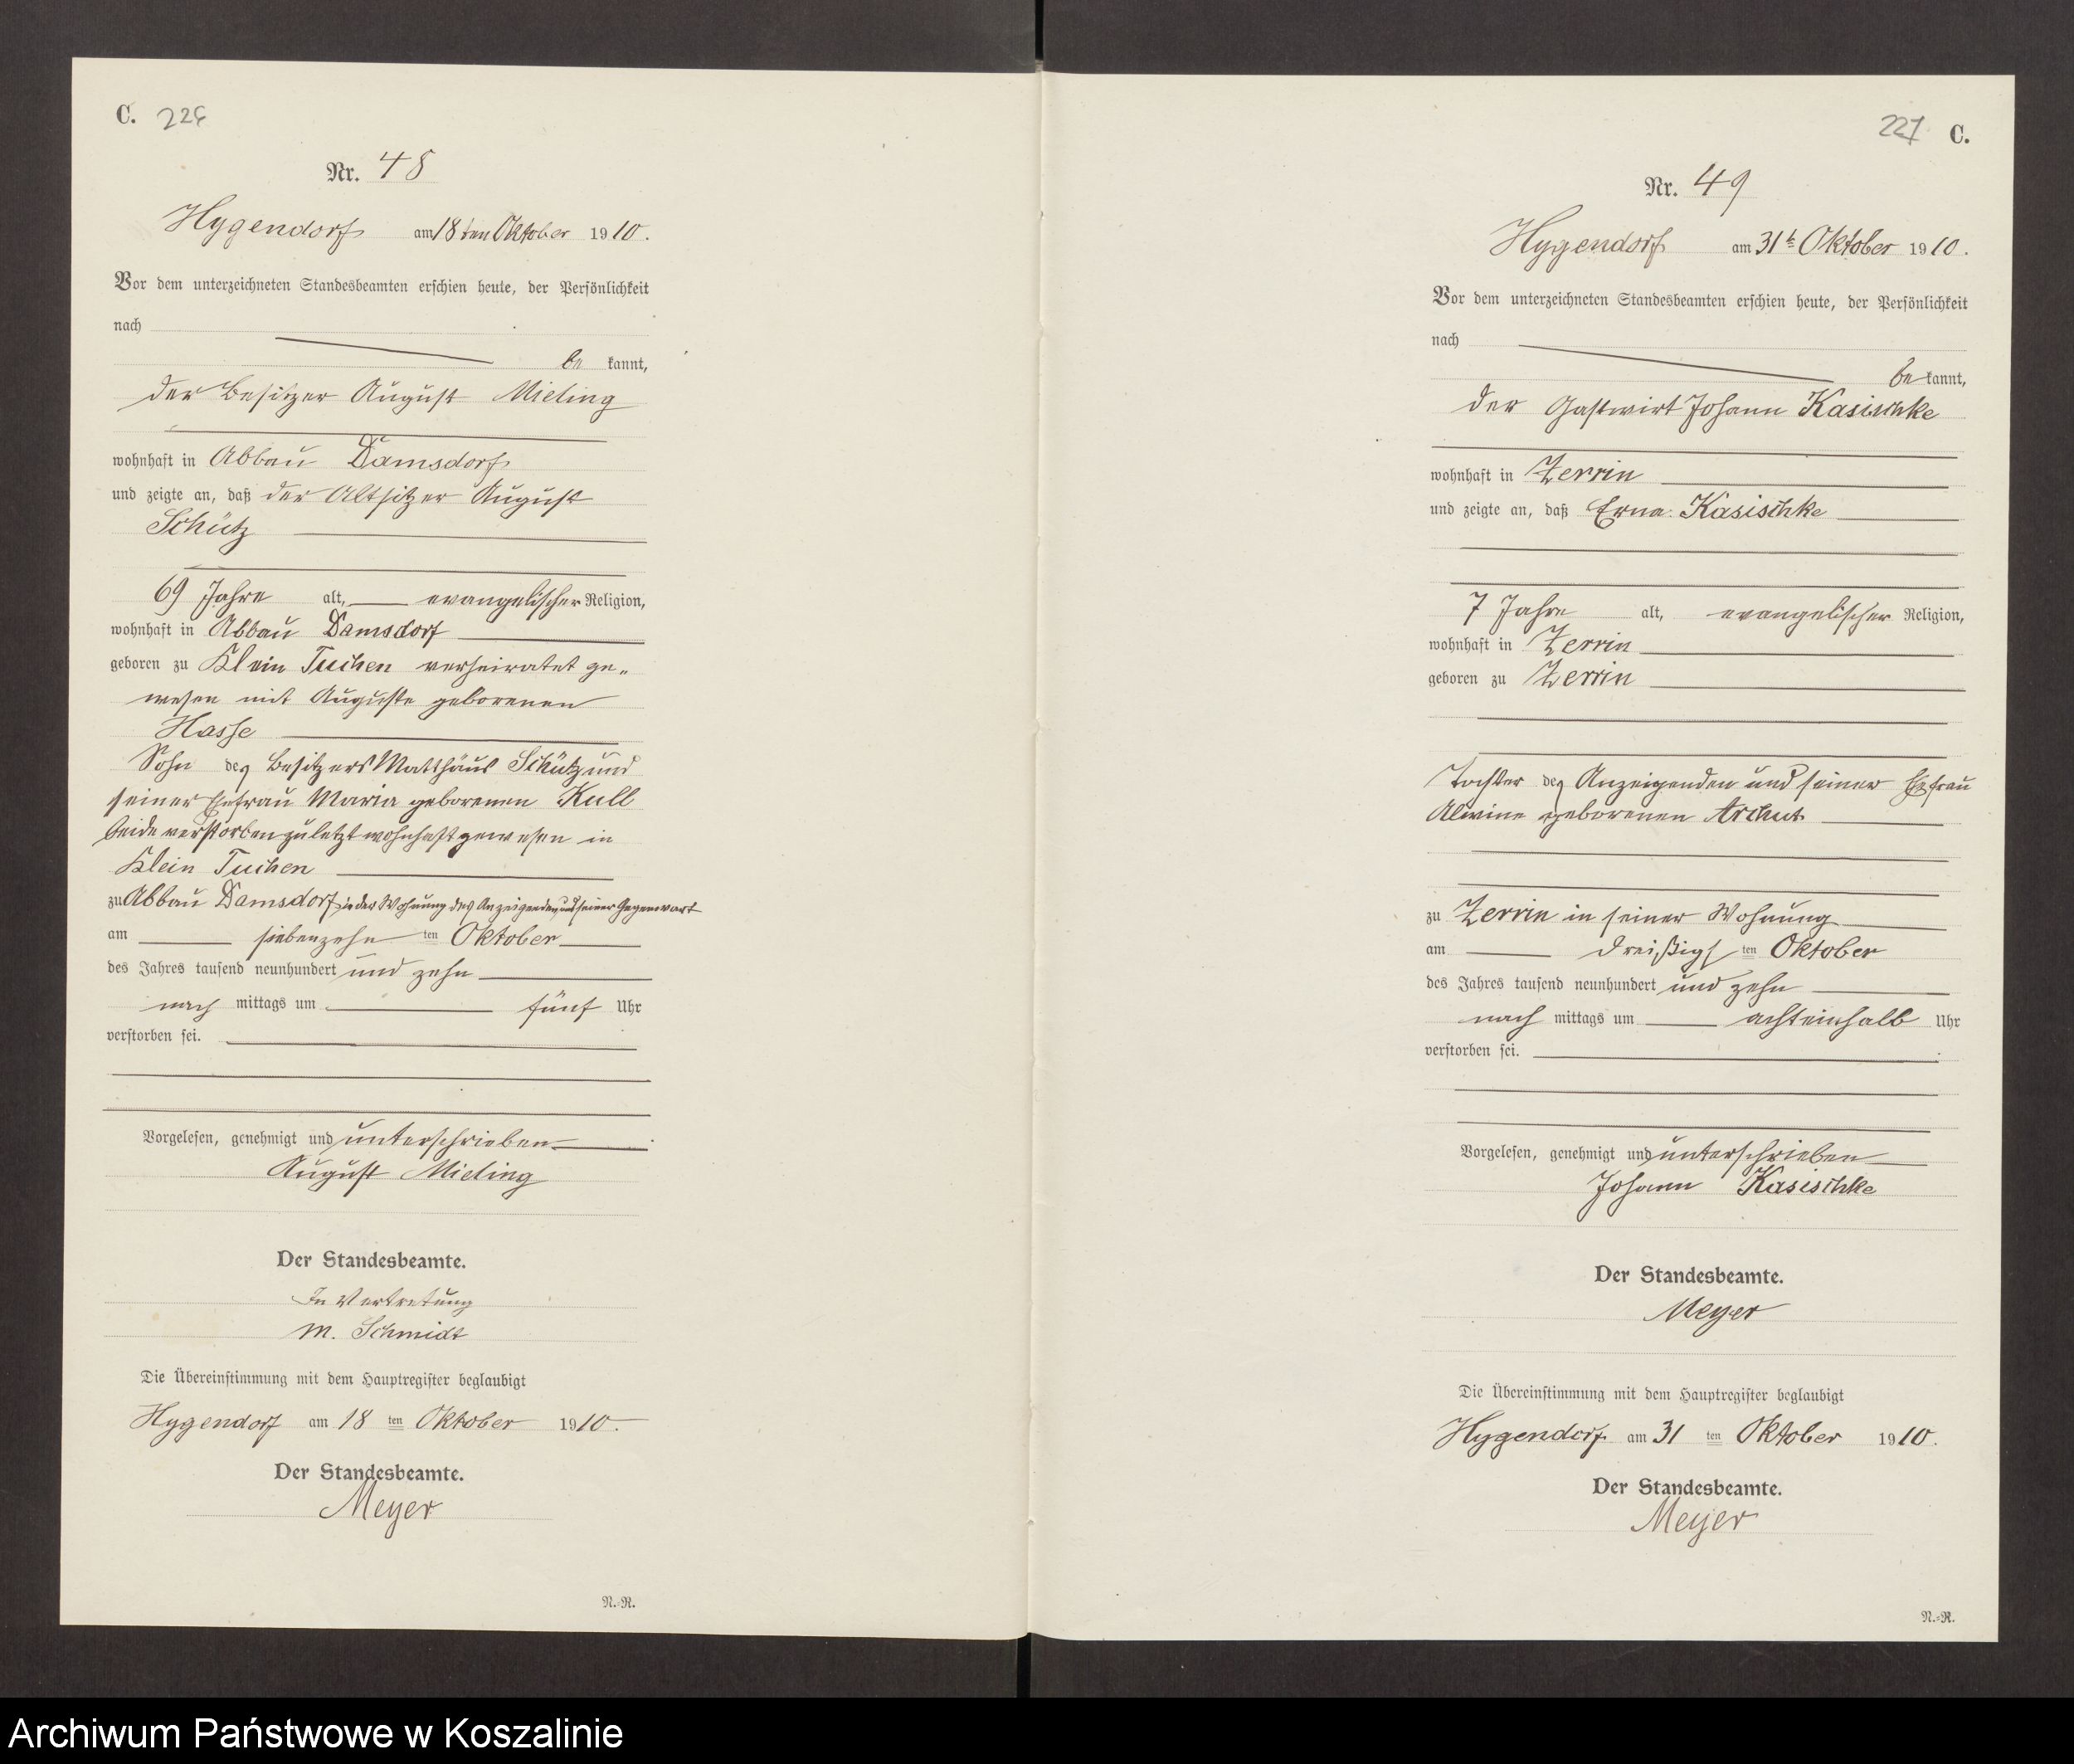 C. 226
Nr. 48
Hygendorf am 18ten Oktober 1910.
Vor dem unterzeichneten Standesbeamten erschien heute, der Persönlichkeit
nach
be kannt,
der Besitzer August Mieling
wohnhaft in Abbau Damsdorf
und zeigte an, daß der Altsitzer August
Schütz
69 Jahre alt, evangelischer Religion,
wohnhaft in Abbau Damsdorf
geboren zu Klein Tuchen verheiratet ge„
wesen mit Auguste geborenen
Hasse
Sohn des Besitzers Matthäus Schütz und
seiner Ehefrau Maria geborenen Kull
beide verstorben zuletzt wohnhaft gewesen in
Klein Tuchen
zu Abbau Damsdorf in der Wohnung des Anzeigenden und seiner Gegenwart
am siebenzehn ten Oktober
des Jahres tausend neunhundert und zehn
nach mittags um fünf Uhr
verstorben sei.
Vorgelesen, genehmigt und unterschrieben
August Mieling
Der Standesbeamte.
In Vertretung
M. Schmidt
Die Übereinstimmung mit dem Hauptregister beglaubigt
Hygendorf am 18 ten Oktober 1910.
Der Standesbeamte.
Meyer
N.-R.
227 C.
Nr. 49
Hygendorf am 31t Oktober 1910.
Vor dem unterzeichneten Standesbeamten erschien heute, der Persönlichkeit
nach
be kannt,
der Gastwirt Johann Kasischke
wohnhaft in Zerrin
und zeigte an, daß Erna Kasischke
7 Jahre alt, evangelischer Religion,
wohnhaft in Zerrin
geboren zu Zerrin
Tochter des Anzeigenden und seiner Ehefrau
Alwine geborenen Archut
zu Zerrin in seiner Wohnung
am dreißigs ten Oktober
des Jahres tausend neunhundert und zehn
nach mittags um achteinhalb Uhr
verstorben sei.
Vorgelesen, genehmigt und unterschrieben
Johann Kasischke
Der Standesbeamte.
Meyer
Die Übereinstimmung mit dem Hauptregister beglaubigt
Hygendorf am 31 ten Oktober 1910.
Der Standesbeamte.
Meyer
N.-R.
Archiwum Państwowe w Koszalinie